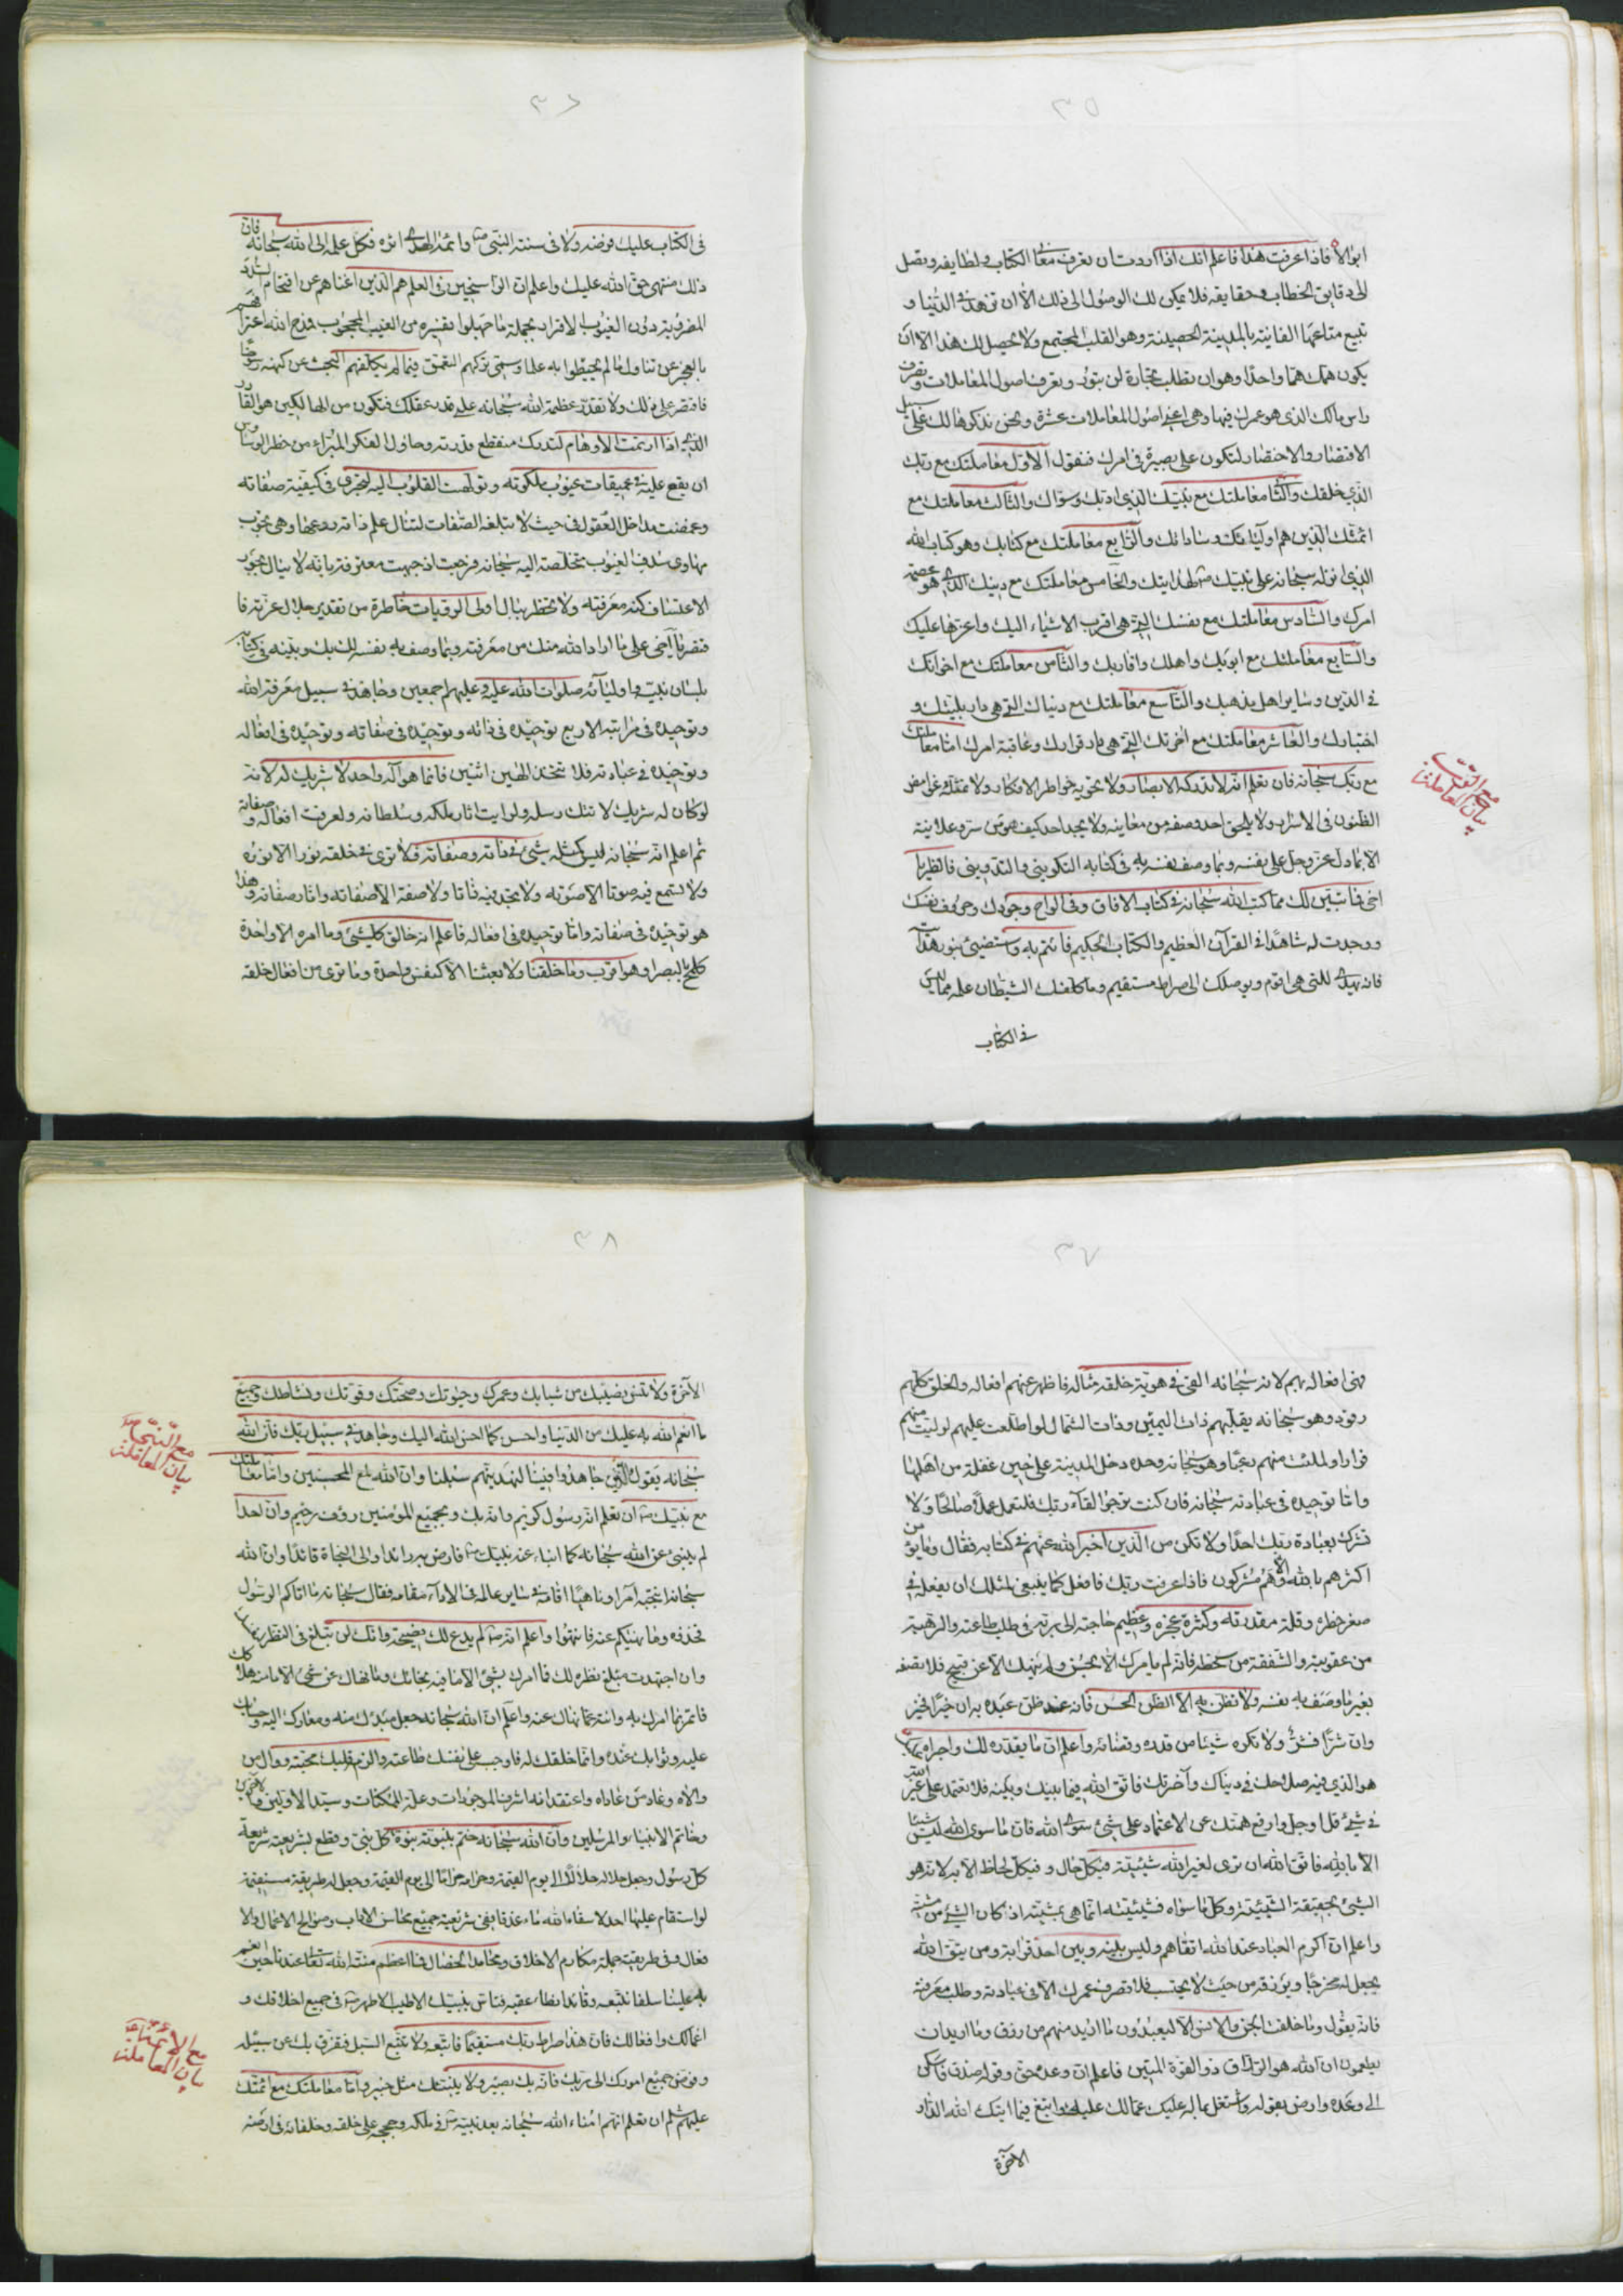 ٣٥
ابوالا فاذا عرفت هذا فاعلم انك اذا اردت ان تعرف معانى الكتاب ولطايفه وتصل
الى دقايق الخطاب وحقايقه فلا يمكن لك الوصول الى ذلك الا ان تزهد فى الدنيا و
تبيع متاعها الفانية بالمدينة الحصينة وهو القلب المجتمع ولا يحصل لك هذا الا ان
يكون همك هما واحدا وهو ان تطلب تجارة لن تبور وتعرف اصول المعاملات وتصرف
راس مالك الذى هو عمرك فيها وهى اعنى اصول المعاملات عشرة ونحن نذكرها لك على سبيل
الاقتصار والاختصار لتكون على بصيرة فى امرك فنقول الاول معاملتك مع ربك
الذى خلقك والثانى معاملتك مع نبيك الذى ادبك وسواك والثالث معاملتك مع
ائمتك الذين هم اولياؤك وساداتك والرابع معاملتك مع كتابك وهو كتاب الله
الذى انزله سبحانه على نبيك ص لهدايتك والخامس معاملتك مع دينك الذى هو عصمة
امرك والسادس معاملتك مع نفسك التى هى اقرب الاشياء اليك واعزها عليك
والسابع معاملتك مع ابويك واهلك واقاربك والثامن معاملتك مع اخوانك
فى الدين وساير اهل مذهبك والتاسع معاملتك مع دنياك التى هى دار بليتك و
اختبارك والعاشر معاملتك مع اخرتك التى هى دار قرارك وعاقبة امرك اما معاملتك
مع ربك سبحانه فان تعلم انه لا تدركه الابصار ولا تحويه خواطر الافكار ولا تمثله غوامض
الظنون فى الاسرار ولا يلحق احد وصفه من معاينة ولا يجد احد كيف هو من سر وعلانية
الا بما دل عز وجل على نفسه وبما وصف نفسه به فى كتابه التكوينى والتدوينى فانظر يا
اخى فما تبين لك مما كتب الله سبحانه فى كتاب الافاق وفى الواح وجودك وحروف نفسك
ووجدت له شاهدا فى القرآن العظيم والكتاب الحكيم فائتم به واستضئ بنور هدايته
فانه يهدى للتى هى اقوم ويوصلك الى صراط مستقيم وما كلفك الشيطان علمه مما ليس
فى الكتاب
بيان المعاملة
مع الرب
٣٦
فى الكتاب عليك فرضه ولا فى سنة النبى ص وائمة الهدى اثره فكل علمه الى الله سبحانه فان
ذلك منتهى حق الله عليك واعلم ان الراسخين فى العلم هم الذين اغناهم عن اقتحام السدد
المضروبة دون الغيوب الاقرار بجملة ما جهلوا تفسيره من الغيب المحجوب فمدح الله اعترافهم
بالعجز عن تناول ما لم يحيطوا به علما وسمى تركهم التعمق فيما لم يكلفهم البحث عن كنهه رسوخا
فاقتصر على ذلك ولا تقدر عظمة الله سبحانه على قدر عقلك فتكون من الهالكين هو القادر
الذى اذا ارتمت الاوهام لتدرك منقطع قدرته وحاول الفكر المبراء من خطر الوساوس
ان يقع عليه فى عميقات غيوب ملكوته وتولهت القلوب اليه لتجرى فى كيفية صفاته
وغمضت مداخل العقول فى حيث لا تبلغه الصفات لتنال علم ذاته ردعها وهى تجوب
مهاوى سدف الغيوب متخلصة اليه سبحانه فرجعت اذ جبهت معترفة بانه لا ينال بجور
الاعتساف كنه معرفته ولا تخطر ببال اولى الرويات خاطرة من تقدير جلال عزته فا
قتصر يا اخى على ما اراد الله منك من معرفته وبما وصف به نفسه لك بك وبينه فى كتابه
بلسان نبيه واوليائه صلوات الله عليه وعليهم اجمعين وجاهد فى سبيل معرفة الله
وتوحيده فى مراتبه الاربع توحيده فى ذاته وتوحيده فى صفاته وتوحيده فى افعاله
وتوحيده فى عبادته فلا تتخذ الهين اثنين فانما هو اله واحد لا شريك له لانه
لو كان له شريك لاتتك رسله ولرايت اثار ملكه وسلطانه ولعرفت افعاله وصفاته
ثم اعلم انه سبحانه ليس كمثله شئ فى ذاته وصفاته فلا ترى فى خلقه نورا الا نوره
ولا تسمع فيه صوتا الا صوته ولا تجد فيه ذاتا ولا صفة الا صفاته واثار صفاته وهذا
هو توحيده فى صفاته واما توحيده فى افعاله فاعلم انه خالق كل شئ وما امره الا واحدة
كلمح بالبصر او هو اقرب وما خلقنا ولا بعثنا الا كنفس واحدة وما ترى من افعال خلقه
٣٧
فهى افعاله بهم لانه سبحانه القى فى هوية خلقه مثاله فاظهر عنهم افعاله والخلق كلهم
رقود وهو سبحانه يقلبهم ذات اليمين وذات الشمال لو اطلعت عليهم لوليت منهم
فرارا ولملئت منهم رعبا وهو سبحانه وحده دخل المدينة على حين غفلة من اهلها
واما توحيده فى عبادته سبحانه فان كنت ترجوا لقاء ربك فلتعمل عملا صالحا ولا
تشرك بعبادة ربك احدا ولا تكن من الذين اخبر الله عنهم فى كتابه فقال وما يؤمن
اكثرهم بالله الا وهم مشركون فاذا عرفت ربك فافعل كما ينبغى لمثلك ان يفعله فى
صغر خطره وقلة مقدرته وكثرة عجزه وعظيم حاجته الى ربه فى طلب طاعته والرهبة
من عقوبته والشفقة من سخطه فانه لم يامرك الا بحسن ولم ينهك الا عن قبيح فلا تصفه
بغير ما وصف به نفسه ولا تظن به الا الظن الحسن فانه عند ظن عبده به ان خيرا فخير
وان شرا فشر ولا تكره شيئا من قدره وقضائه واعلم ان ما يقدره لك واجراه عليك
هو الذى فيه صلاحك فى دنياك وآخرتك فاتق الله فيما بينك وبينه فلا تعتمد على غير الله
فى شئ قل او جل وارفع همتك عن الاعتماد على شئ سوى الله فان ما سوى الله ليس شيئا
الا بالله فاتق الله ان ترى لغير الله شيئية فى كل حال وفى كل لحاظ الا به لانه هو
الشئ بحقيقة الشيئية وكل ما سواه فشيئيته انما هى بمشيته اذ كان الشئ من مشيته
واعلم ان اكرم العباد عند الله اتقاهم وليس بينه وبين احد قرابة ومن يتق الله
يجعل له مخرجا ويرزقه من حيث لا يحتسب فلا تصرف عمرك الا فى عبادته وطلب معرفته
فانه يقول وما خلقت الجن والانس الا ليعبدون ما اريد منهم من رزق وما اريد ان
يطعمون ان الله هو الرزاق ذو القوة المتين فاعلم ان وعده حق وقوله صدق فاسكن
الى وعده وارض بقوله واشتغل بما له عليك عما لك عليه وابتغ فيما اتيك الله الدار
الآخرة
٣٨
الآخرة ولا تنس نصيبك من شبابك وعمرك وحيوتك وصحتك وقوتك ونشاطك وجميع
ما انعم الله به عليك من الدنيا واحسن كما احسن الله اليك وجاهد فى سبيل ربك فان الله
سبحانه يقول والذين جاهدوا فينا لنهدينهم سبلنا وان الله لمع المحسنين واما معاملتك
مع نبيك ص ان تعلم انه رسول كريم وانه بك وبجميع المؤمنين رؤف رحيم وان احدا
لم ينبئ عن الله سبحانه كما انباء عنه نبيك ص فارض به رائدا والى النجاة قائدا وان الله
سبحانه انتجبه آمرا وناهيا اقامه فى ساير عالمه فى الاداء مقامه فقال سبحانه ما اتاكم الرسول
فخذوه وما نهيكم عنه فانتهوا واعلم انه ص لم يدع لك نصيحة وانك لن تبلغ فى النظر لنفسك
وان اجتهدت مبلغ نظره لك فما امرك بشئ الا ما فيه نجاتك وما نهاك عن شئ الا ما منه هلاكك
فاتمر بما امرك به وانته عما نهاك عنه واعلم ان الله سبحانه جعل مبدئك منه ومعادك اليه وحسابك
عليه وثوابك عنده وانما خلقك له فاوجب على نفسك طاعته والزم قلبك محبته ووال من
والاه وعاد من عاداه واعتقد انه اشرف الموجودات وعلة الممكنات وسيد الاولين والاخرين
وخاتم الانبياء والمرسلين وان الله سبحانه ختم بنبوته نبوة كل نبى وقطع بشريعته شريعة
كل رسول وجعل حلاله حلالا الى يوم القيمة وحرامه حراما الى يوم القيمة وجعل له طريقة مستقيمة
لو استقام عليها احد لاسقاه الله ماء غدقا ففى شريعته جميع محاسن الاداب وصوالح الاعمال والا
فعال وفى طريقته جملة مكارم الاخلاق ومحامد الخصال فما اعظم منة الله تعالى عندنا حين انعم
به علينا سلفا نتبعه وقائدا نطاء عقبه فتاس بنبيك الاطيب الاطهر ص فى جميع اخلاقك و
اعمالك وافعالك فان هذا صراط ربك مستقيما فاتبعه ولا تتبع السبل فتفرق بك عن سبيله
وفوض جميع امورك الى ربك فانه بك بصير ولا ينبئك مثل خبير واما معاملتك مع ائمتك
عليهم السلم ان تعلم انهم امناء الله سبحانه بعد نبيه ص فى ملكه وحججه على خلقه وخلفائه فى ارضه
بيان المعاملة
مع النبى ص
بيان المعاملة
مع الائمة ع